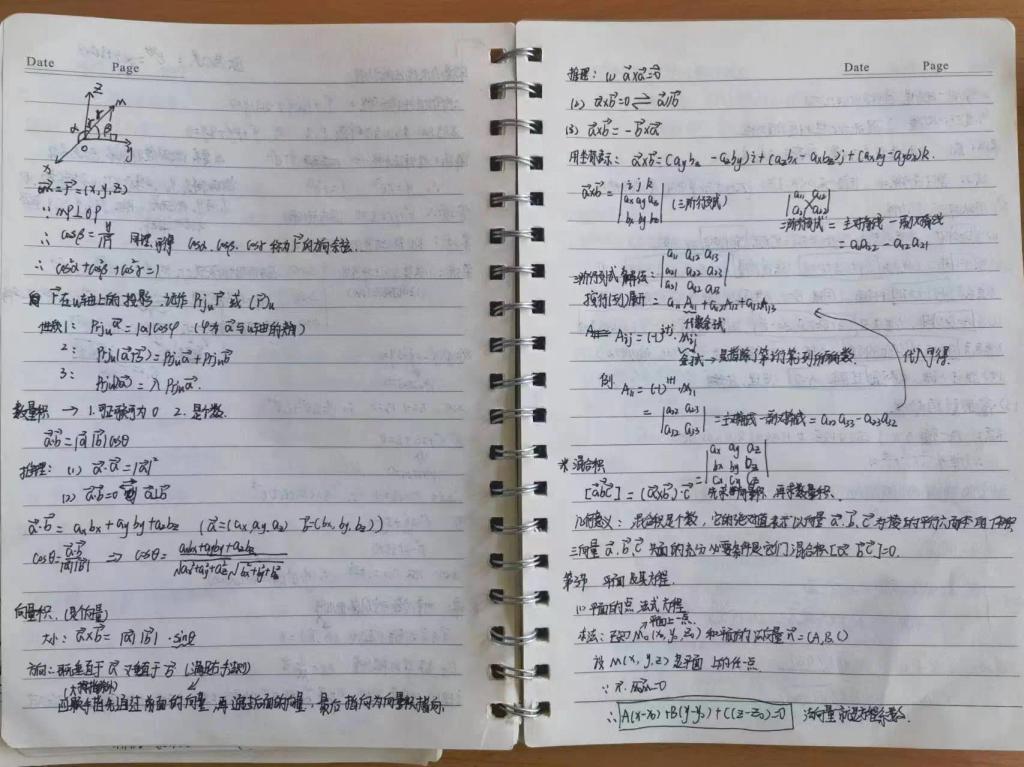 Date Page
z
M
α
β
y
O
x
OM = r = (x, y, z)
∵ MP⊥OP
∴ cosβ = y/|r| 同理可得 cosα, cosβ, cosγ 称为r的方向余弦.
∴ cos²α + cos²β + cos²γ = 1
r在u轴上的投影, 记作 Prjᵤr 或 (r)ᵤ
性质1: Prjᵤa = |a|cosφ (φ为a与u轴的夹角)
2: Prjᵤ(a+b) = Prjᵤa + Prjᵤb
3: Prjᵤ(λa) = λPrjᵤa.
数量积 → 1. 可正可负可为0 2. 是个数.
a·b = |a||b|cosθ
推理: (1) a·a = |a|²
(2) a·b=0 a⊥b
a·b = axbx + ayby + azbz (a=(ax,ay,az) b=(bx,by,bz))
cosθ = a·b/|a||b| ⇒ cosθ = (axbx+ayby+azbz)/(√ax²+ay²+az² √bx²+by²+bz²)
向量积. (是个向量)
大小: a×b = |a||b|·sinθ
方向: 既垂直于a又垂直于b (满足右手法则)
(大拇指朝外)
四联手指先通过前面的向量, 再通过后面的向量, 最后指向为向量积指向.
Date Page
推理: (1) a×a=0
(2) a×b=0 ⇌ a∥b
(3) a×b = -b×a
用坐标表示: a×b = (aybz - azby)i + (azbx - axbz)j + (axby - aybx)k.
a×b = |i j k| (三阶行列式) |a11 a12|
|ax ay az| |a21 a22|
|bx by bz| 二阶行列式 = 主对角线 - 副对角线
= a11a22 - a12a21
三阶行列式解法: |a11 a12 a13|
|a21 a22 a23|
|a31 a32 a33|
按行(列)展开 = a11A11 + a12A12 + a13A13
代数余子式
Aij = (-1)^(i+j)·Mij
余子式 → 是指除了第i行第j列所有的数. 代入可得.
例. A11 = (-1)^(1+1)·M11
= |a22 a23| = 主对角线 - 副对角线 = a22a33 - a23a32
|a32 a33|
※ 混合积 |ax ay az|
|bx by bz|
[abc] = (a×b)·c = |cx cy cz| 先求向量积, 再求数量积.
几何意义: 混合积是个数, 它的绝对值表示以向量a, b, c为棱的平行六面体的体积
三向量a, b, c共面的充分必要条件是它们混合积[a b c]=0.
第3节 平面及其方程.
(1) 平面的点法式方程
平面上一点.
本法: 已知M0(x0, y0, z0)和平面的法向量n=(A, B, C)
设M(x, y, z)是平面上的任一点
∵ n·M0M=0
∴ A(x-x0)+B(y-y0)+C(z-z0)=0 法向量就是方程系数.